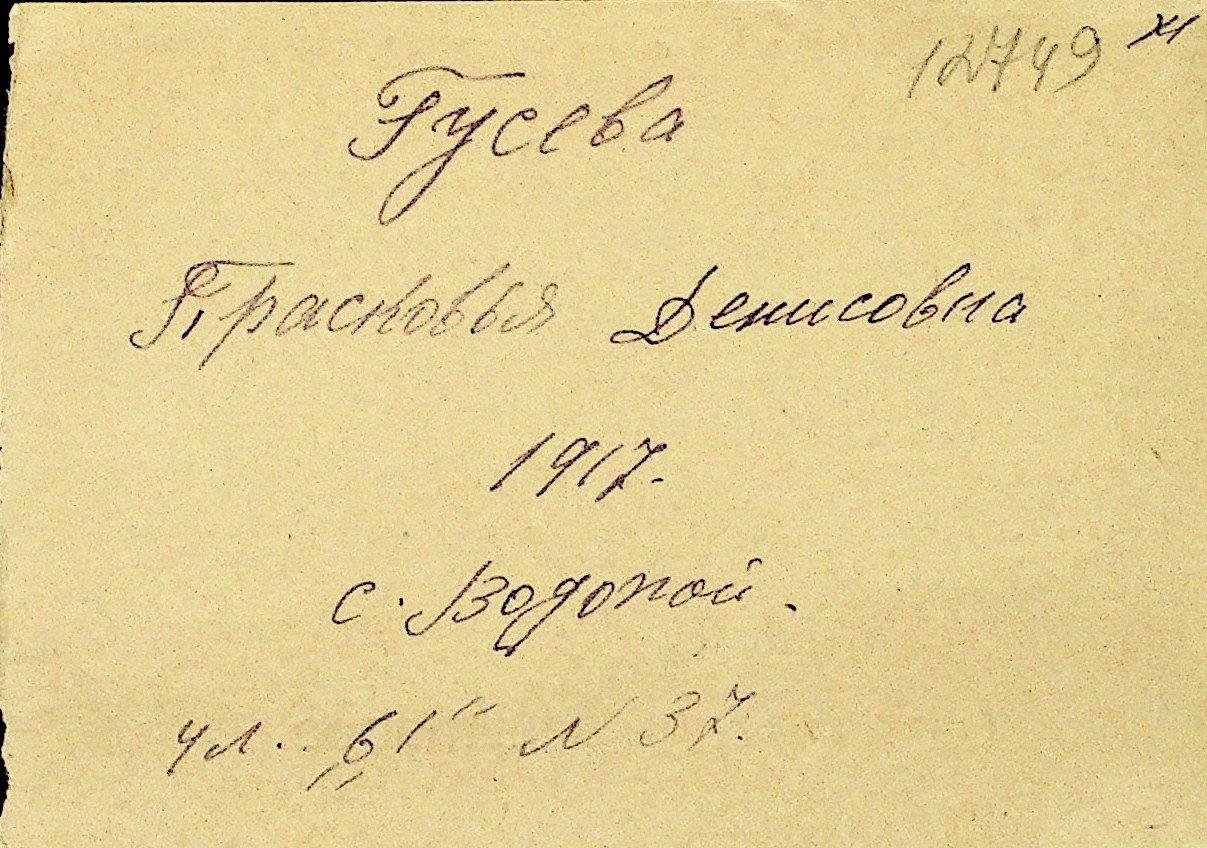 12749
Гусева
Прасковья Денисовна
1917.
с. Водопой.
ул. "61" N 37.